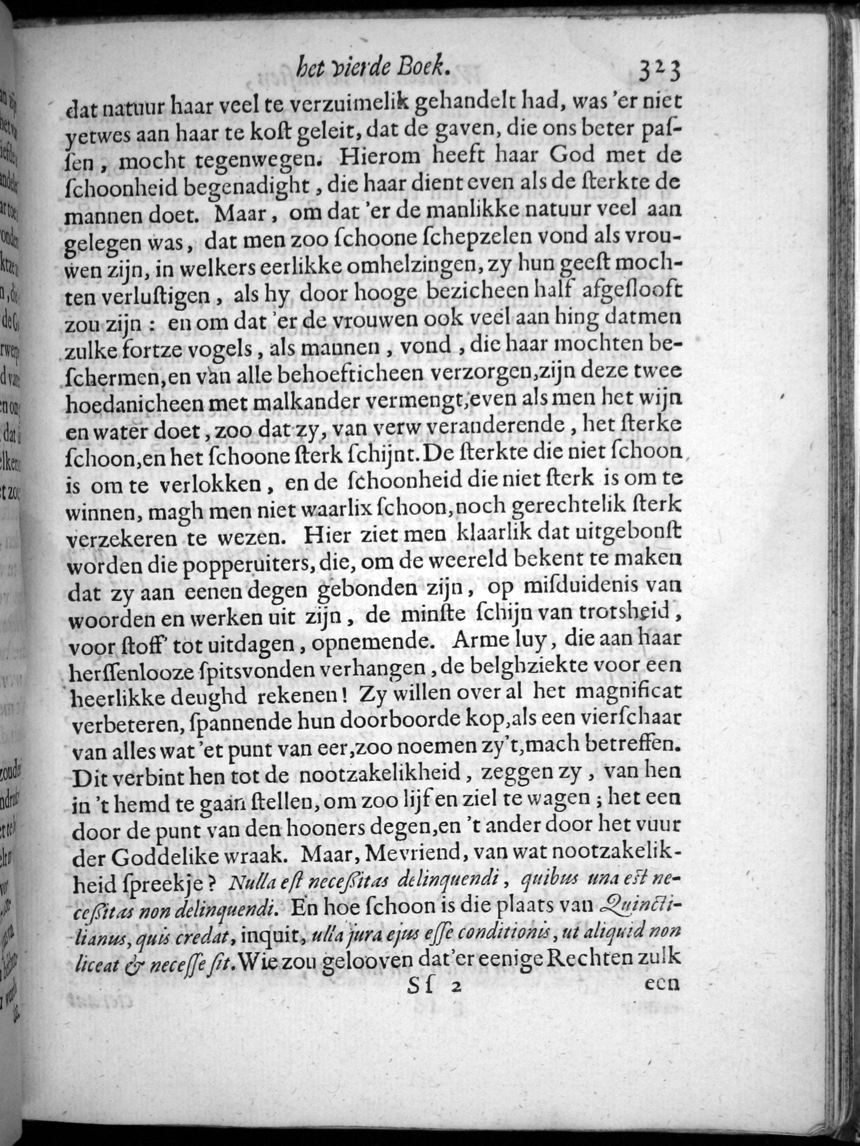 het vierde Boek. 323
dat natuur haar veel te verzuimelik gehandelt had, was 'er niet
yetwes aan haar te koſt geleit, dat de gaven, die ons beter paſ-
ſen, mocht tegenwegen. Hierom heeft haar God met de
ſchoonheid begenadight, die haar dient even als de ſterkte de
mannen doet. Maar, om dat 'er de manlikke natuur veel aan
gelegen was, dat men zoo ſchoone ſchepzelen vond als vrou-
wen zijn, in welkers eerlikke omhelzingen, zy hun geeſt moch-
ten verluſtigen, als hy door hooge bezicheen half afgeſlooft
zou zijn: en om dat 'er de vrouwen ook veel aan hing datmen
zulke fortze vogels, als mannen, vond, die haar mochten be-
ſchermen, en van alle behoefticheen verzorgen, zijn deze twee
hoedanicheen met malkander vermengt, even als men het wijn
en water doet, zoo dat zy, van verw veranderende, het ſterke
ſchoon, en het ſchoone ſterk ſchijnt. De ſterkte die niet ſchoon
is om te verlokken, en de ſchoonheid die niet ſterk is om te
winnen, magh men niet waarlix ſchoon, noch gerechtelik ſterk
verzekeren te wezen. Hier ziet men klaarlik dat uitgebonſt
worden die popperuiters, die, om de weereld bekent te maken
dat zy aan eenen degen gebonden zijn, op miſduidenis van
woorden en werken uit zijn, de minſte ſchijn van trotsheid,
voor ſtoff' tot uitdagen, opnemende. Arme luy, die aan haar
herſſenlooze ſpitsvonden verhangen, de belghziekte voor een
heerlikke deughd rekenen! Zy willen over al het magnificat
verbeteren, ſpannende hun doorboorde kop, als een vierſchaar
van alles wat 'et punt van eer, zoo noemen zy't, mach betreffen.
Dit verbint hen tot de nootzakelikheid, zeggen zy, van hen
in 't hemd te gaan ſtellen, om zoo lijf en ziel te wagen; het een
door de punt van den hooners degen, en 't ander door het vuur
der Goddelike wraak. Maar, Mevriend, van wat nootzakelik-
heid ſpreekje? Nulla eſt neceſſitas delinquendi, quibus una eſt ne-
ceſſitas non delinquendi. En hoe ſchoon is die plaats van Quincti-
lianus, quis credat, inquit, ulla jura ejus eſſe conditionis, ut aliquid non
liceat & neceſſe ſit. Wie zou gelooven dat'er eenige Rechten zulk
Sſ 2 een